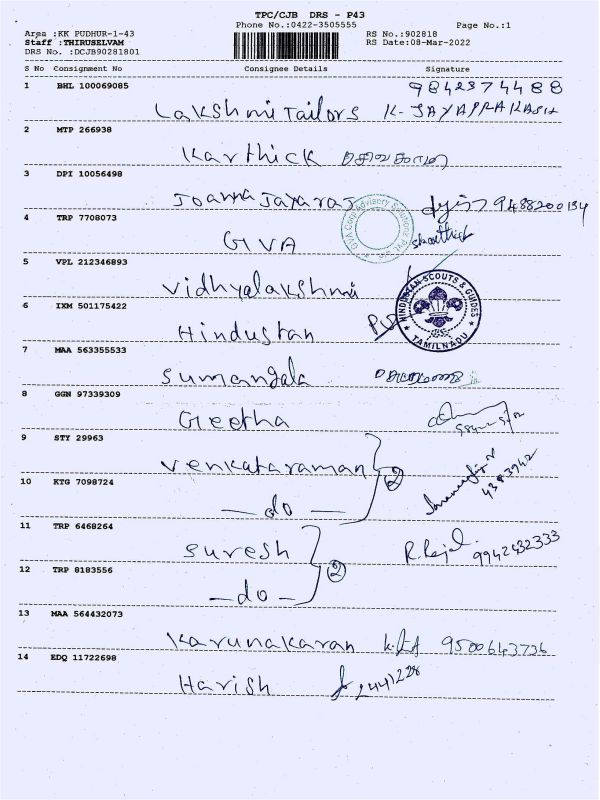 TPC/CJB DRS - P43
Phone No.:0422-3505555 Page No.:1
Area :KK PUDHUR-1-43 RS No.:902818
Staff :THIRUSELVAM RS Date:08-Mar-2022
DRS No. :DCJB90281801
S No Consignment No Consignee Details Signature
1 BHL 100069085 9842374488
Lakshmi Tailors K. JAYAPRAKASH
2 MTP 266938
Karthick
3 DPI 10056498
Joanna Jayaraj 9488200134
4 TRP 7708073
GIVA
GIVA Corp Advisory Solutions Pvt
5 VPL 212346893
Vidhyalakshmi
6 IXM 501175422
Hindustan
HINDUSTAN SCOUTS & GUIDES
TAMILNADU
7 MAA 563355533
Sumangala
8 GGN 97339309
Geetha
9 STY 29963
Venkataraman 2
10 KTG 7098724
—do—
11 TRP 6468264
Suresh 2 R. 9942432333
12 TRP 8183556
—do—
13 MAA 564432073
Karunakaran 9500643736
14 EDQ 11722698
Harish